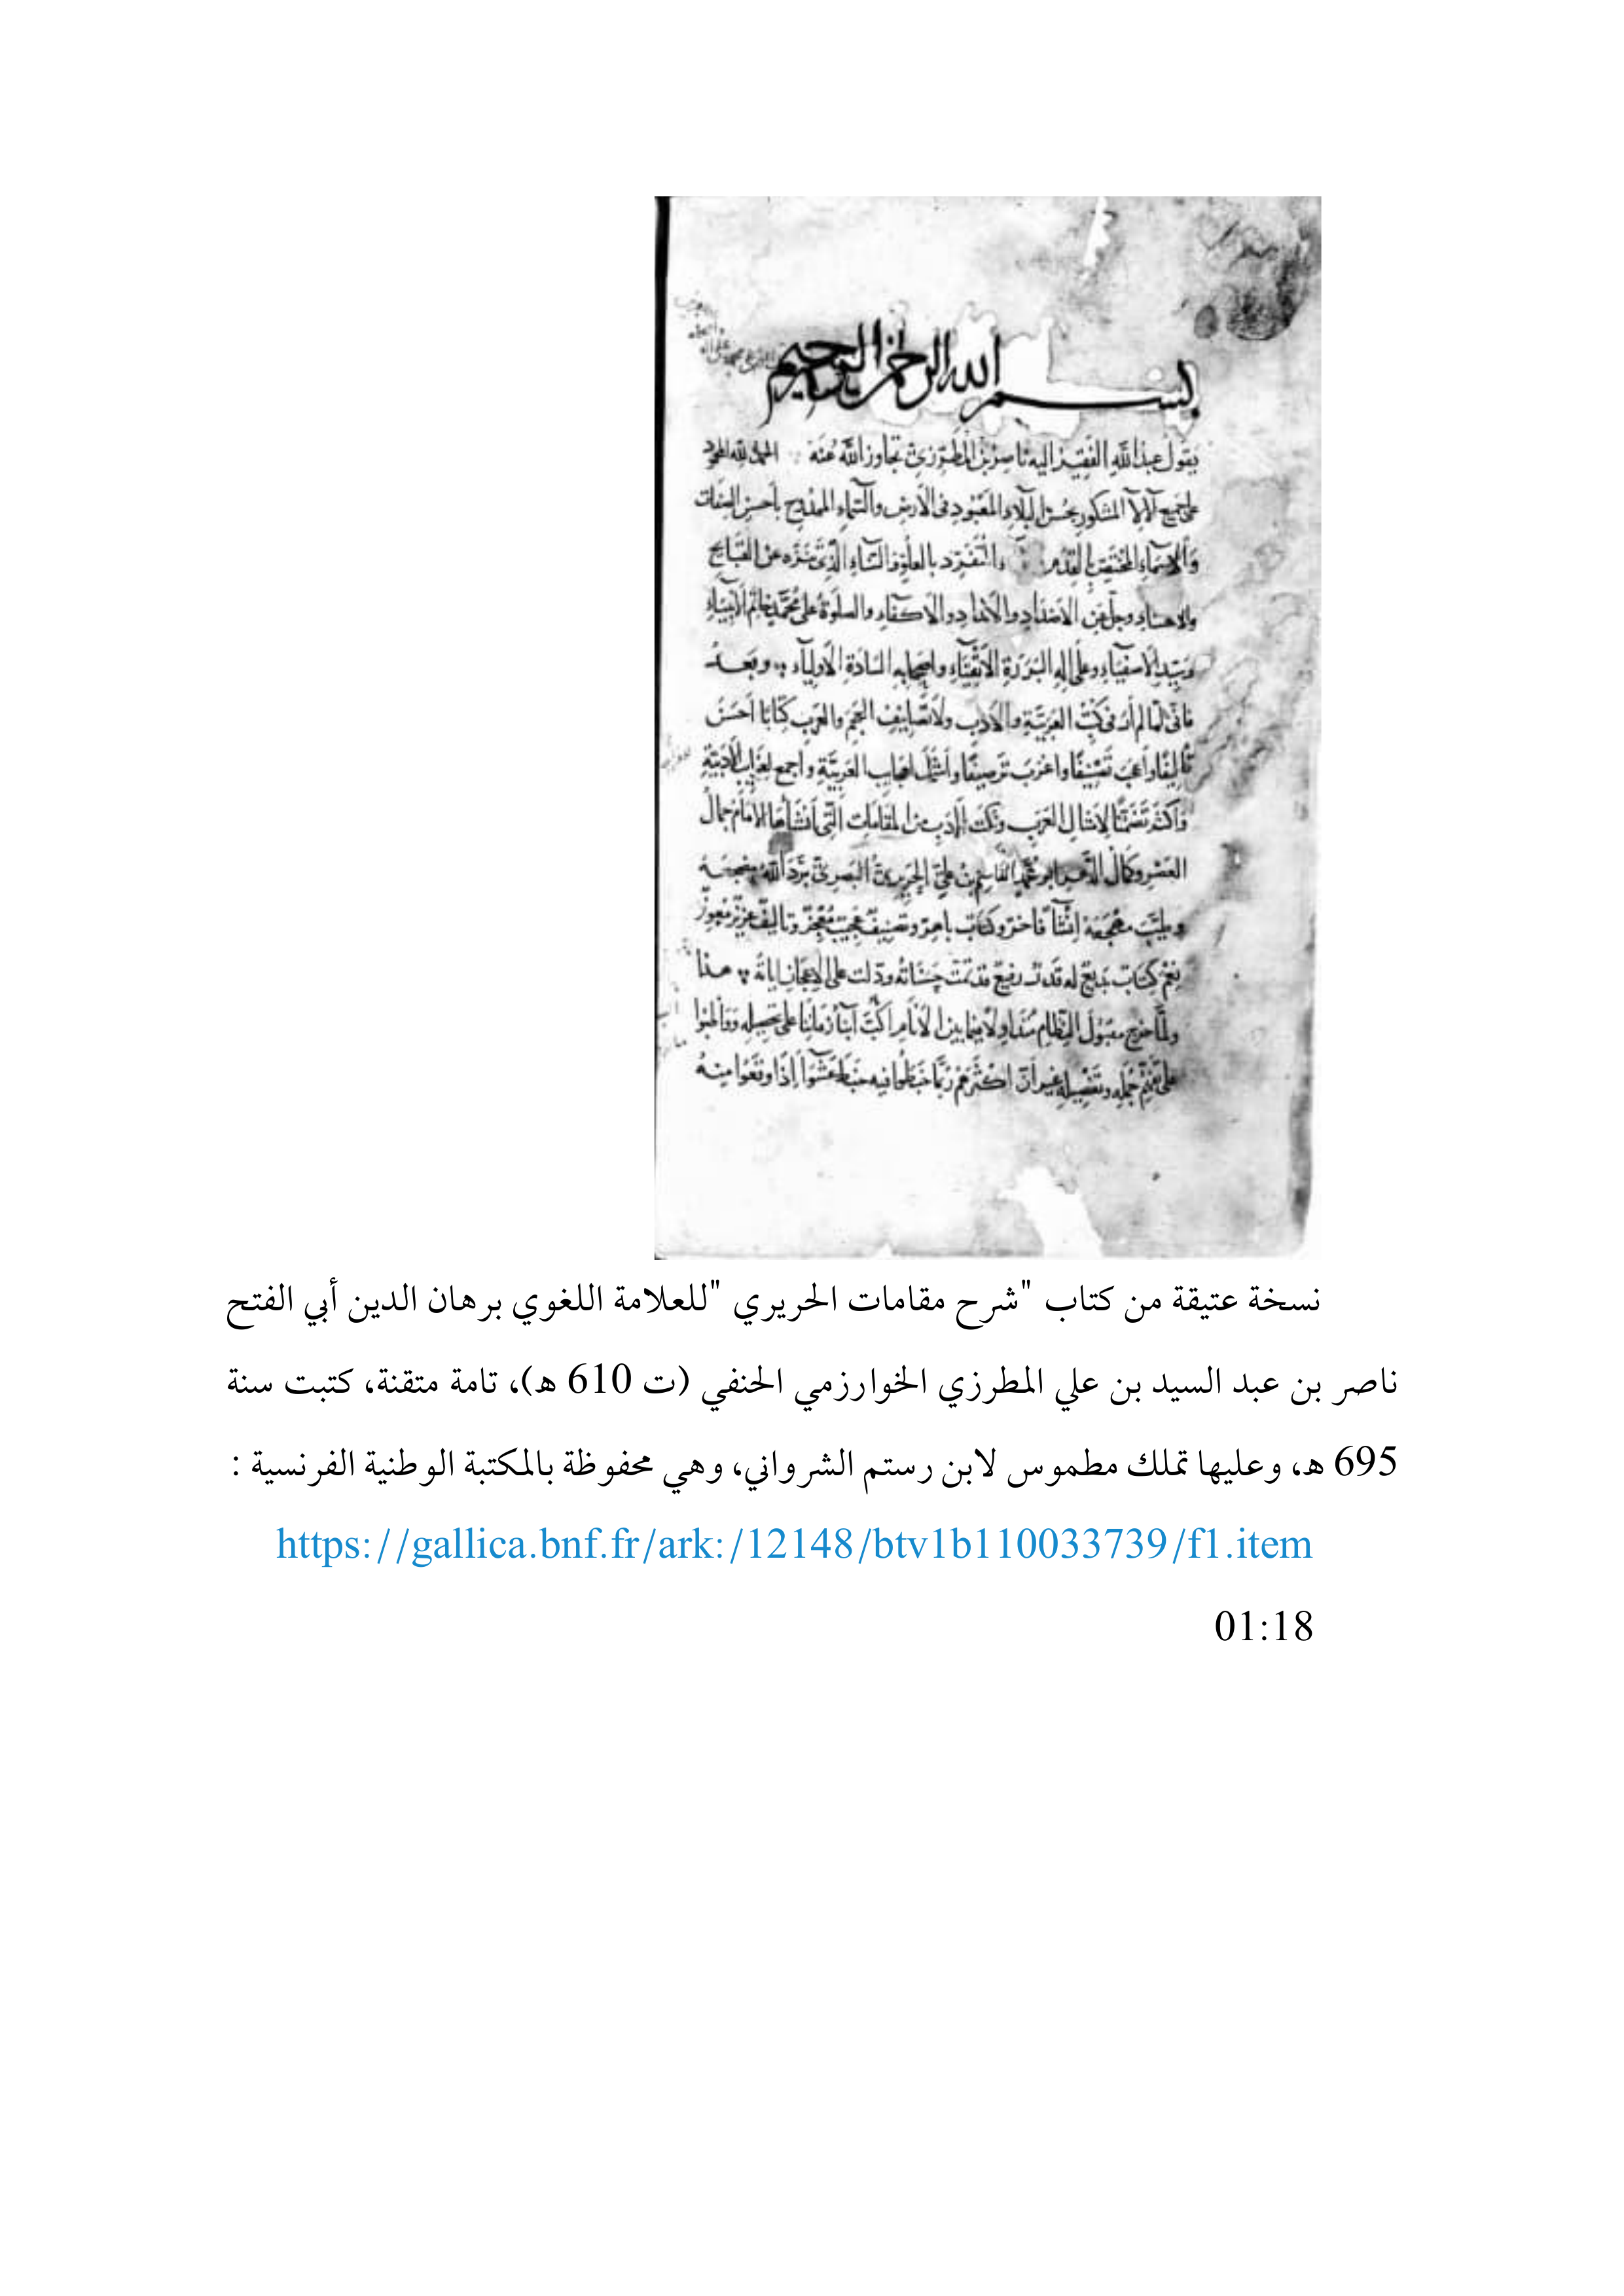 بسم الله الرحمن الرحيم
يقول عبد الله الفقير اليه ناصر بن المطرزي تجاوز الله عنه الحمد لله المحمود
على جميع آلائه المشكور بحسن البلاء المعبود في الأرض والسماء الممدوح بأحسن الصفات
والاسماء المختص بالقدم والمتفرد بالعلو والسناء الذي تنزه عن القبائح
وجل عن الاضداد والانداد والاكفاء والصلوة على محمد خاتم الأنبياء
وسيد الاصفياء وعلى اله البررة الأتقياء واصحابه السادة الأولياء وبعد
فاني لما لم أر في كتب العربية والأدب ولا تصانيف العجم والعرب كتابا أحسن
تأليفا وأعجب تصنيفا واغرب ترصيفا وأشمل لعجايب العربية وأجمع لغرايب الأدبية
وأكثر تضمنا لامثال العرب ونكت الأدب من المقامات التي أنشأها الامام جمال
العصر وكمال الدهر ابو محمد القاسم بن علي الحريري البصري برد الله مضجعه
وطيب مهجعه إنشآء فاخر وكتاب باهر وتصنيف عجيب معجز وتأليف عزيز معوز
نعم كتاب بديع له قدر رفيع قد تمت حسناته ودلت على الاعجاز اياته هذا
ولما خرج مقبول النظام متداولا فيما بين الأنام أكب أبنآء زماننا على تحصيله
جمله وتفصيله غير أن اكثرهم ربما خبطوا فيه خبط عشوآء إذا وقعوا منه
نسخة عتيقة من كتاب "شرح مقامات الحريري "للعلامة اللغوي برهان الدين أبي الفتح
ناصر بن عبد السيد بن علي المطرزي الخوارزمي الحنفي (ت 610 ه)، تامة متقنة، كتبت سنة
695 ه، وعليها تملك مطموس لابن رستم الشرواني، وهي محفوظة بالمكتبة الوطنية الفرنسية :
https://gallica.bnf.fr/ark:/12148/btv1b110033739/f1.item
01:18